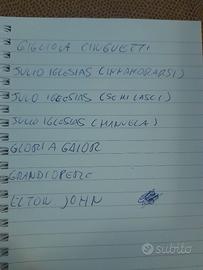 GIGLIOLA CINGUETTI
JULIO IGLESIAS (INNAMORARSI)
JULIO IGLESIAS (SE MI LASCI)
JULIO IGLESIAS (MANUELA)
GLORIA GAIOR
ELTON JOHN
subito